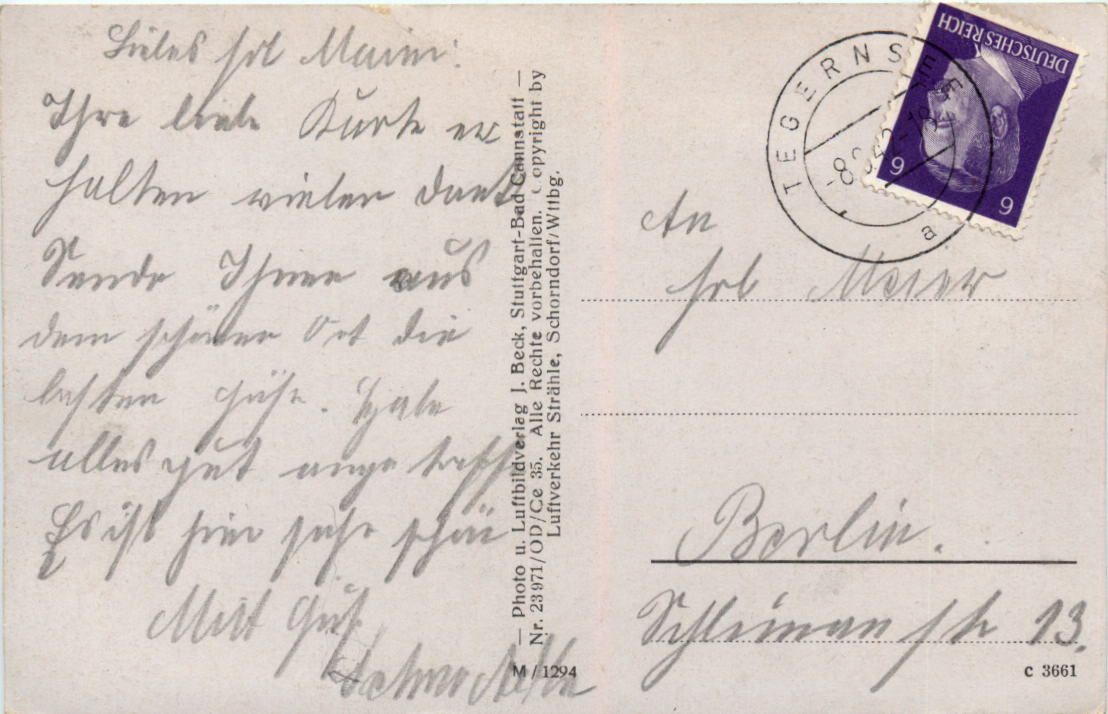 Liebes Frl Maier!
Ihre liebe Karte er
halten vielen Dank
Sende Ihnen aus
dem schönen Ort die
besten Grüße. Habe
alles gut angetroffen
Es ist hier sehr schön
Mitt Gruß
— Photo u. Luftbildverlag J. Beck, Stuttgart-Bad Cannstatt —
Nr. 23971/OD/Ce 35. Alle Rechte vorbehalten. Copyright by
Luftverkehr Strähle, Schorndorf/Wttbg.
M/1294
DEUTSCHES REICH
6 6
TEGERNSEE
a
An
Frl Meier
Berlin.
Schliemanstr 13.
C 3661